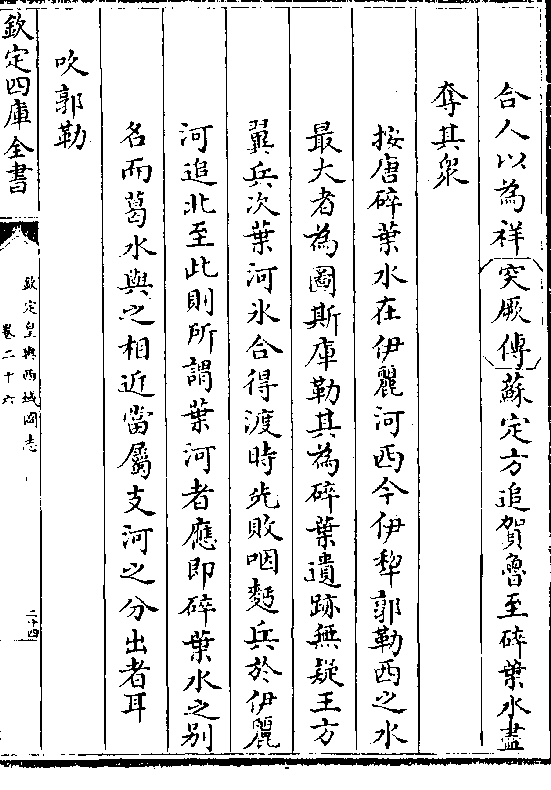 合人以為祥突厥傳蘇定方追賀魯至碎葉水盡
奪其衆
按唐碎葉水在伊麗河西今伊犂郭勒西之水
最大者為圖斯庫勒其為碎葉遺跡無疑王方
翼兵次葉河氷合得渡時先敗咽麪兵於伊麗
河追北至此則所謂葉河者應即碎葉水之别
名而葛水與之相近當屬支河之分出者耳
吹郭勒
欽定四庫全書
欽定皇輿西域圖志
卷二十六
二十四